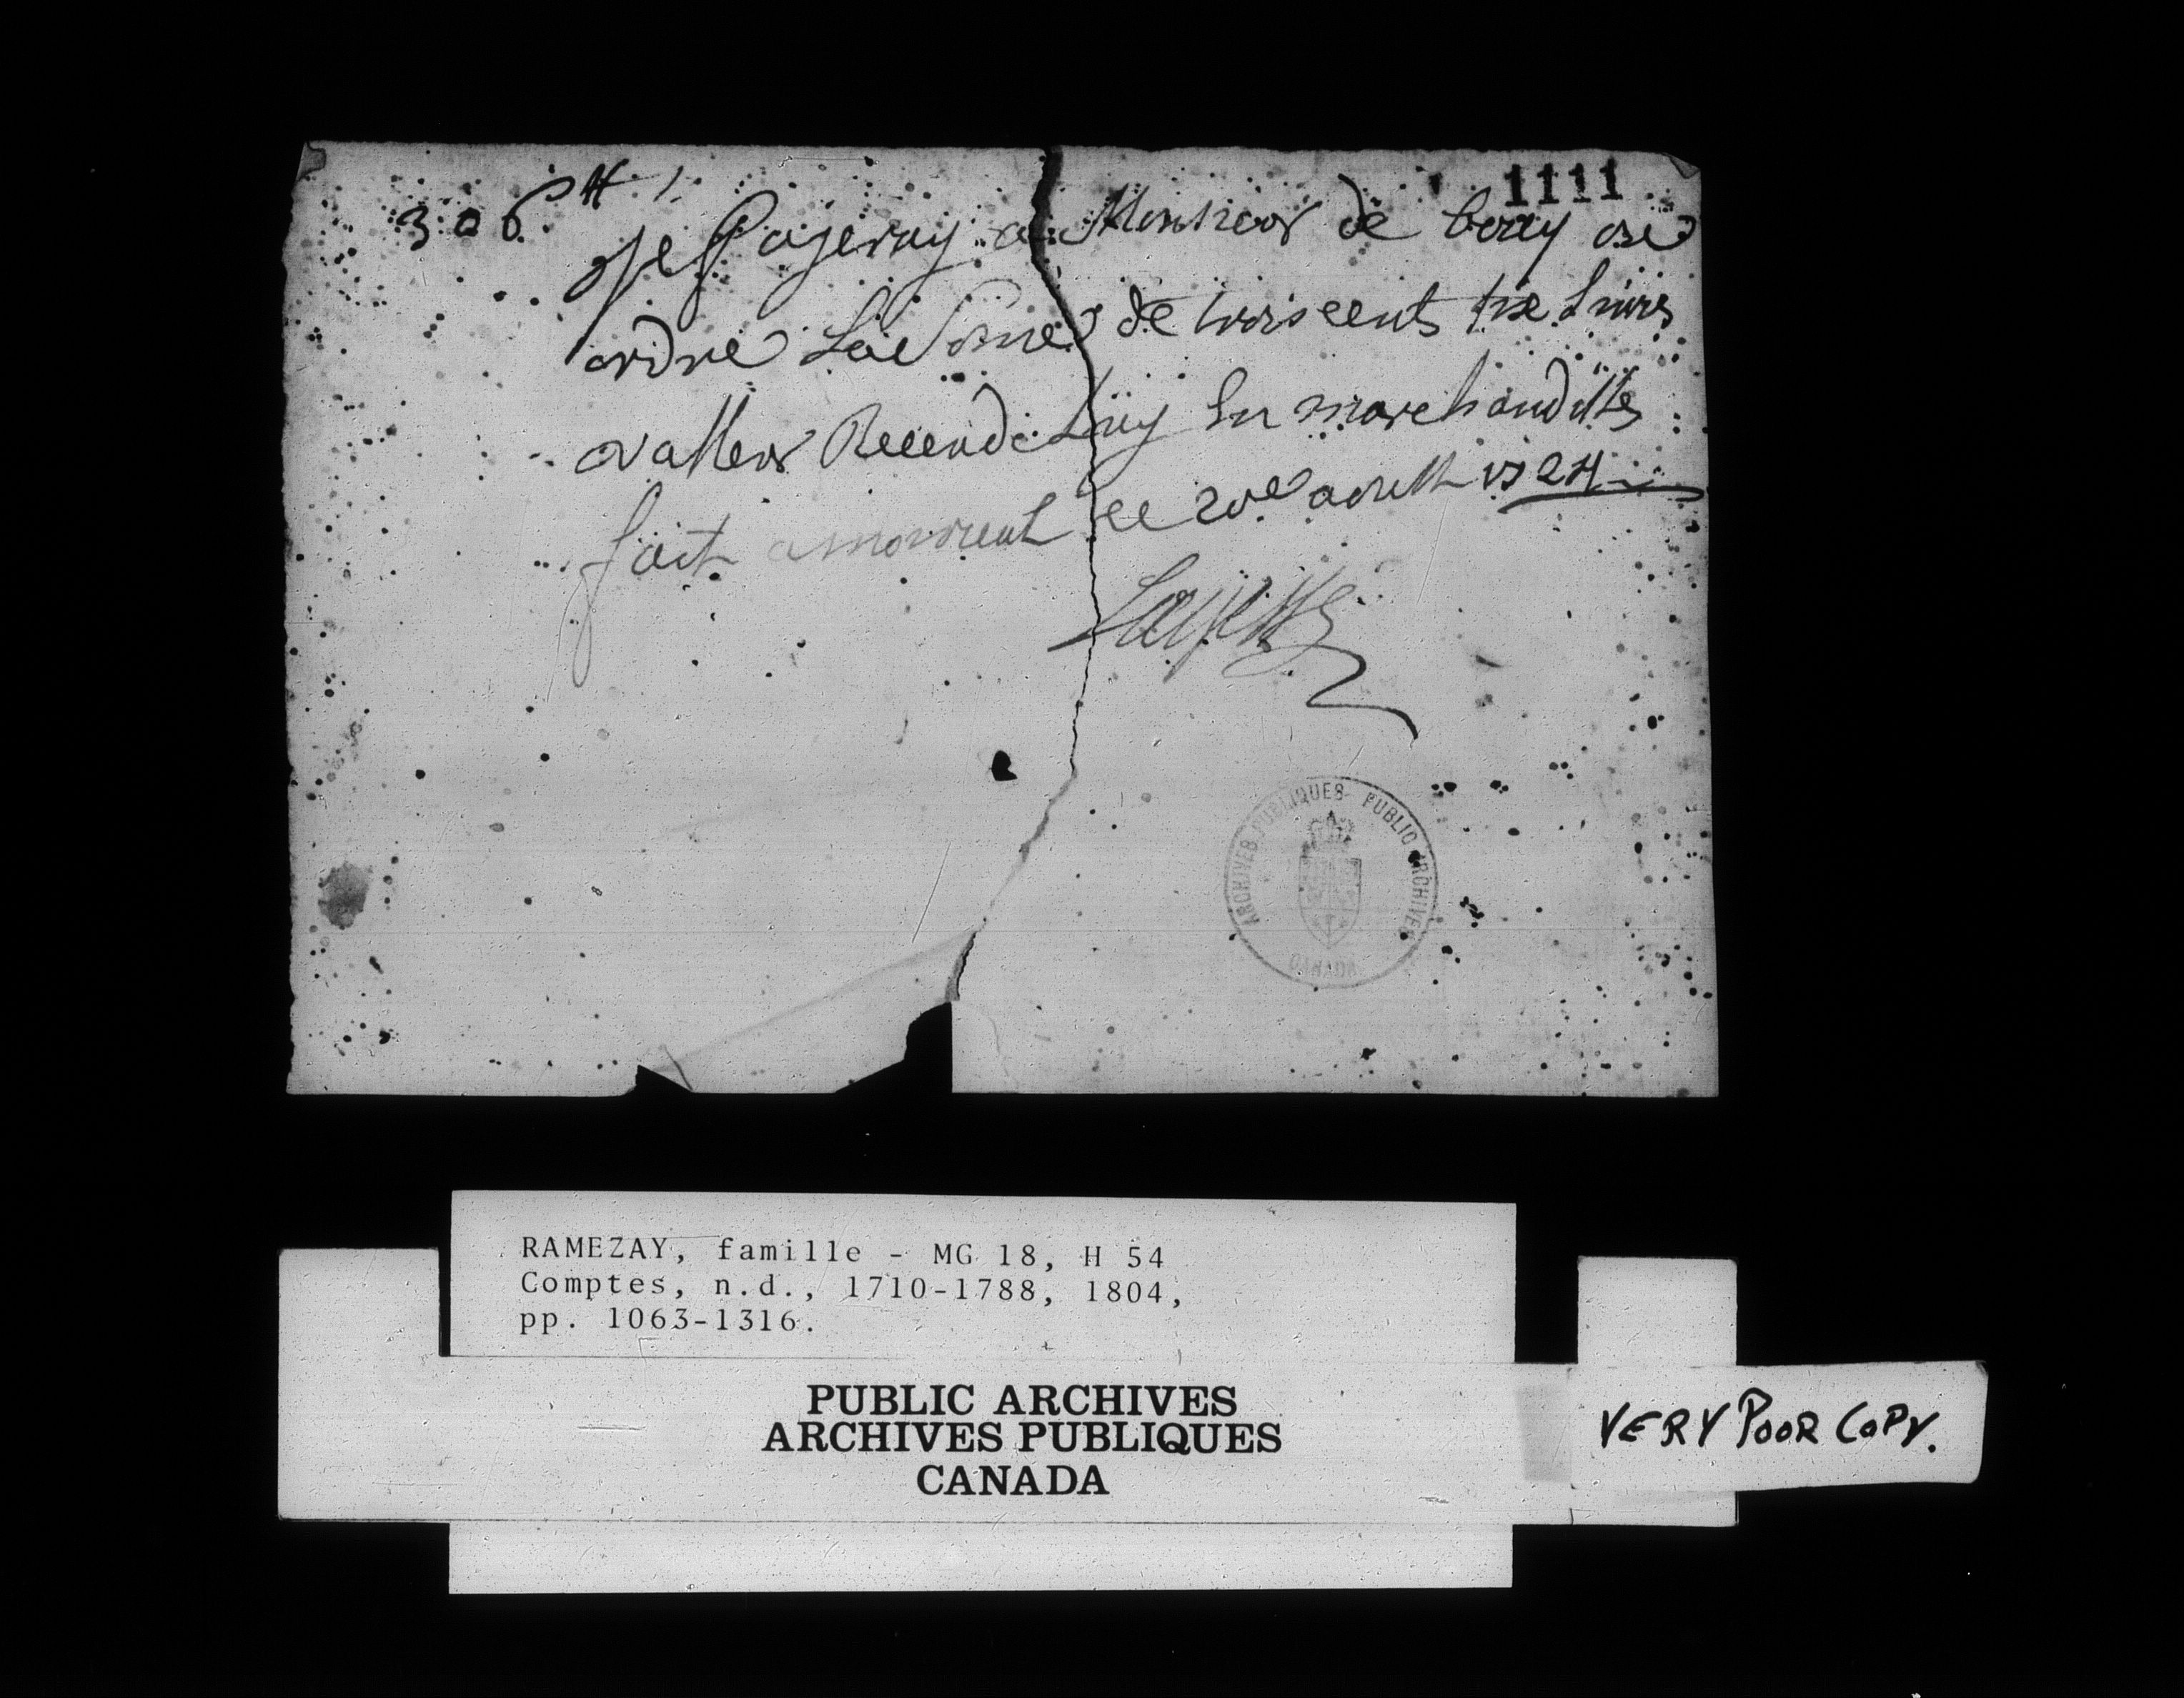 1111
306 ₶
Je payeray a Monsieur de
ordre La Some de trois cents six Livres
valleur Receude Luy En marchandittes
fait a monreal ce 20e aoust 1724
ARCHIVES PUBLIQUES PUBLIC ARCHIVES
CANADA
RAMEZAY, famille - MG 18, H 54
Comptes, n.d., 1710-1788, 1804,
pp. 1063-1316.
PUBLIC ARCHIVES
ARCHIVES PUBLIQUES
CANADA
VERY POOR COPY.